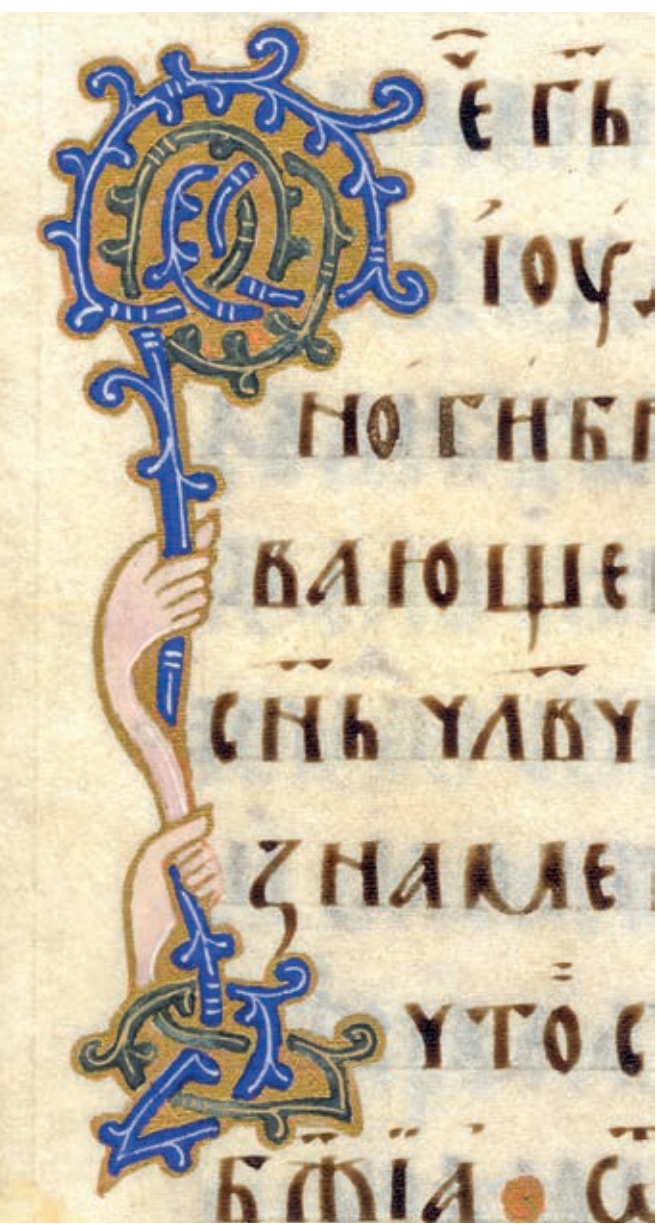 е г҃ь
іоуд
но гибл
вающе
сн҃ь чл҃вч
знаме
что с
бж҃їа • ѿ